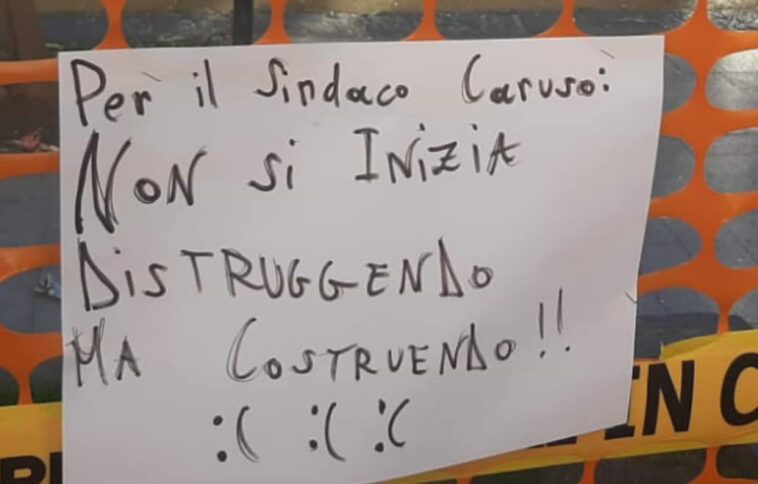 Per il Sindaco Caruso:
NON Si INiZIA
DiSTRUGGENDO
MA COSTRUENDO!!
:( :( :(
IN C